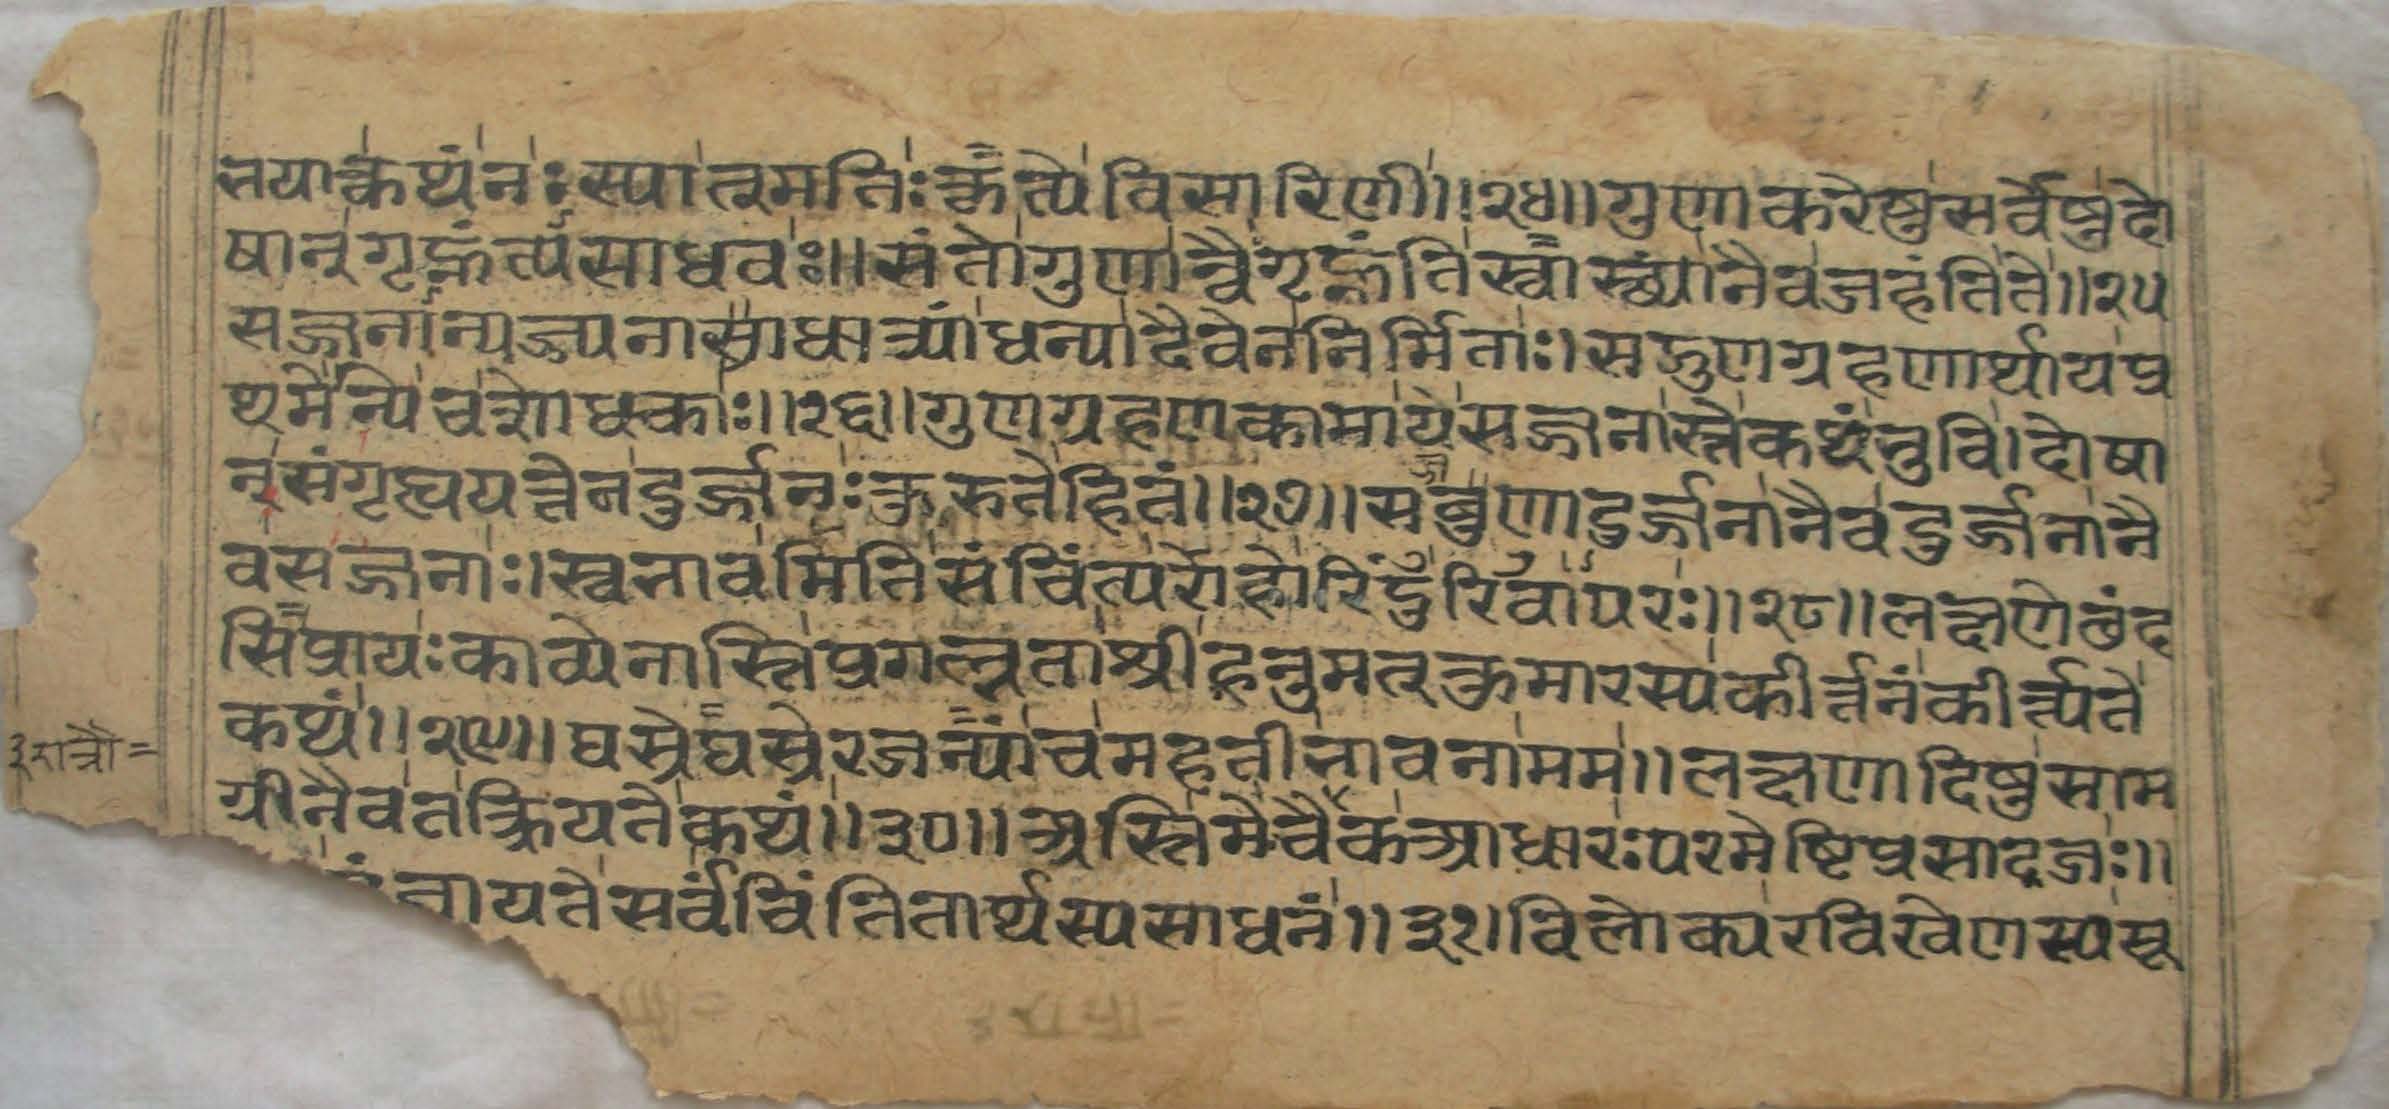 तया कथं नः स्यात् मतिः कृत्ये विसारिणी ॥२४॥ गुणाकरेषु सर्वेषु दो
षान् गृह्णंत्यसाधवः ॥ संतो गुणान्वै गृह्णंति नैव जहंति ते ॥२५
धन्या दैवेन निर्मिताः । सद्गुणग्रहणार्थाय प्र
थमेन्ये च शोधकाः ॥२६॥ गुणग्रहणकामा ये सज्जनास्ते कथं नु वि । दोषा
न् संगृह्य यत्नेन दुर्जनः कुरुते हितं ॥२७॥ दुर्जना नैव दुर्जना नै
व सज्जनाः । स्वभावमिति संचिंत्य परः ॥२८॥ लक्षणे छंद
सि प्रायः काव्ये नास्ति प्रगल्भता श्रीहनुमत्कुमारस्य कीर्त्तनं कीर्त्यते
कथं ॥२९॥ घस्रे घस्रे रजन्यां च महती भावना मम ॥ लक्षणादिषु साम
ग्री नैव तत्क्रियते कथं ॥३०॥ अस्ति मे चैक आधारः परमेष्टिप्रसादजः ॥
जायते सर्वं चिंतितार्थस्य साधनं ॥३१। विलोक्य रवि
३ रात्रौ =